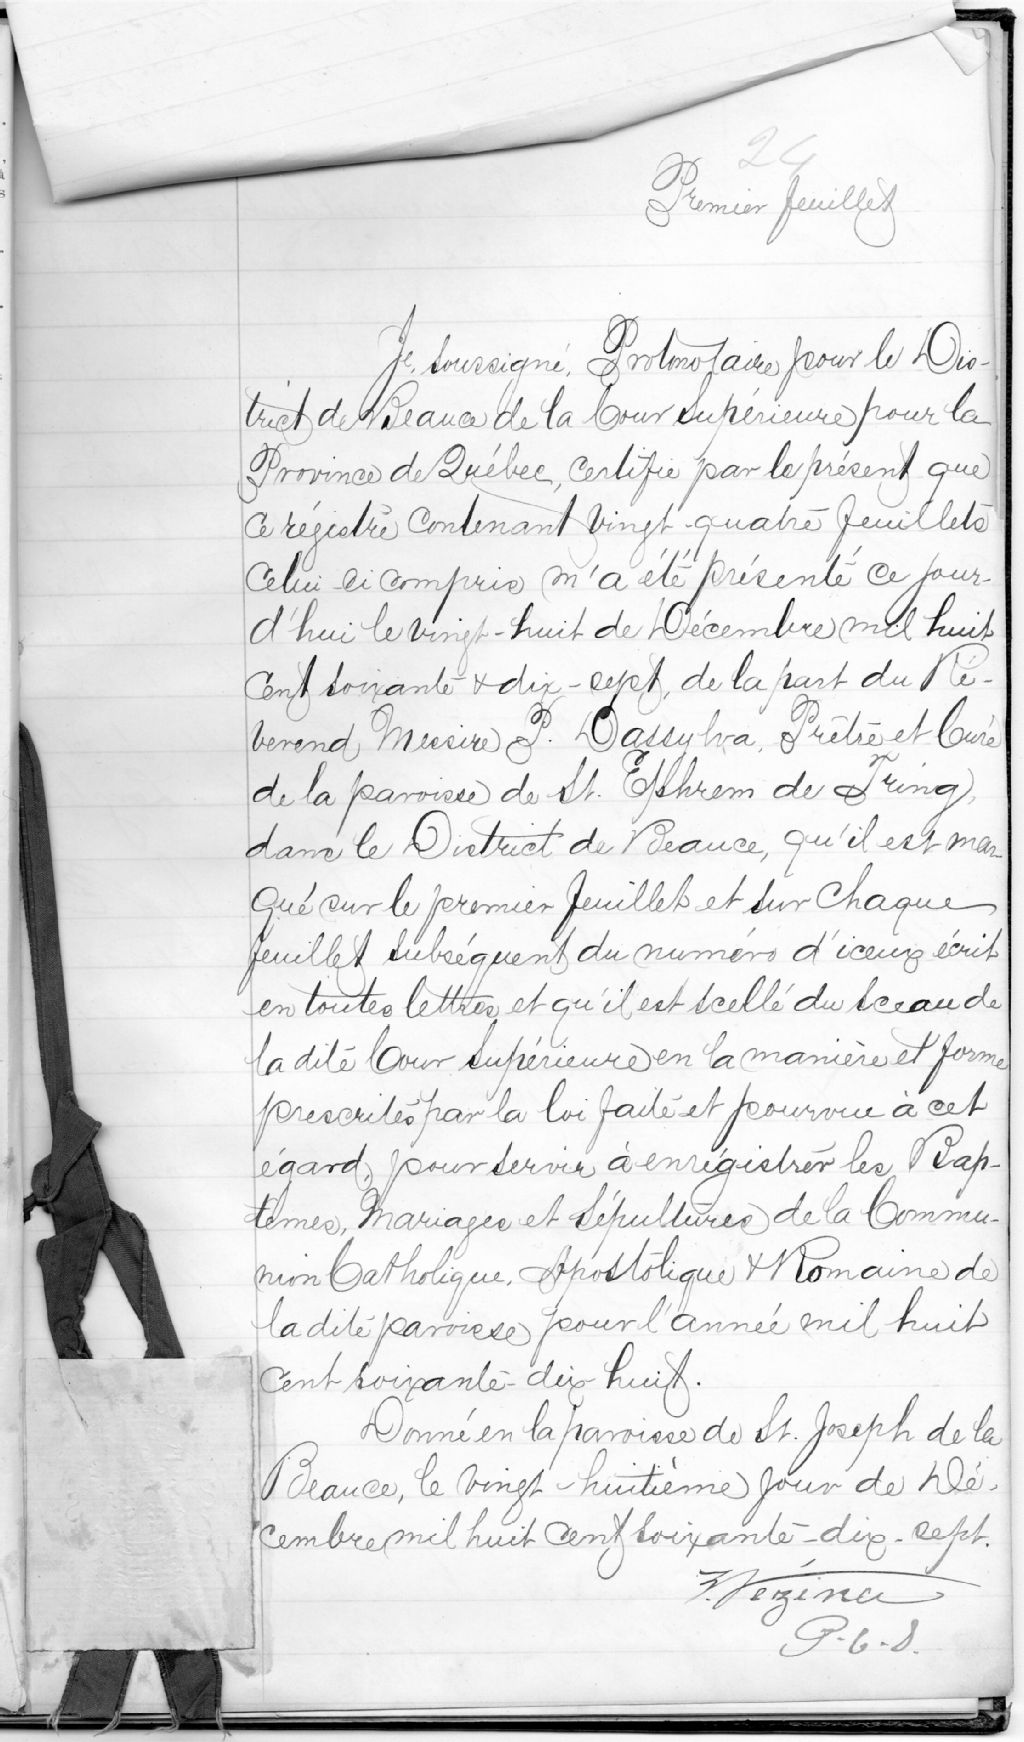 24
Premier feuillet
Je, soussigné, Protonotaire pour le Dis-
trict de Beauce de la Cour Supérieure pour la
Province de Québec, certifie par le présent que
ce régistre contenant vingt-quatre feuillets
celui-ci compris m'a été présenté ce jour-
d'hui le vingt-huit de Décembre mil huit
cent soixante & dix-sept, de la part du Ré-
verend Messire P. Dassylva, Prêtre et Curé
de la paroisse de St. Ephrem de Tring,
dans le District de Beauce, qu'il est mar-
qué sur le premier feuillet et sur chaque
feuillet subséquent du numéro d'iceux écrit
en toutes lettres et qu'il est scellé du sceau de
la dite Cour Supérieure en la manière et forme
prescrites par la loi faite et pourvue à cet
égard, pour servir à enrégistrer les Bap-
têmes, Mariages et Sépultures de la Commu-
nion Catholique, Apostolique & Romaine de
la dite paroisse pour l'année mil huit
cent soixante-dix-huit.
Donné en la paroisse de St. Joseph de la
Beauce, le vingt-huitième jour de Dé-
cembre mil huit cent soixante-dix-sept.
Vézina
P.C.S.